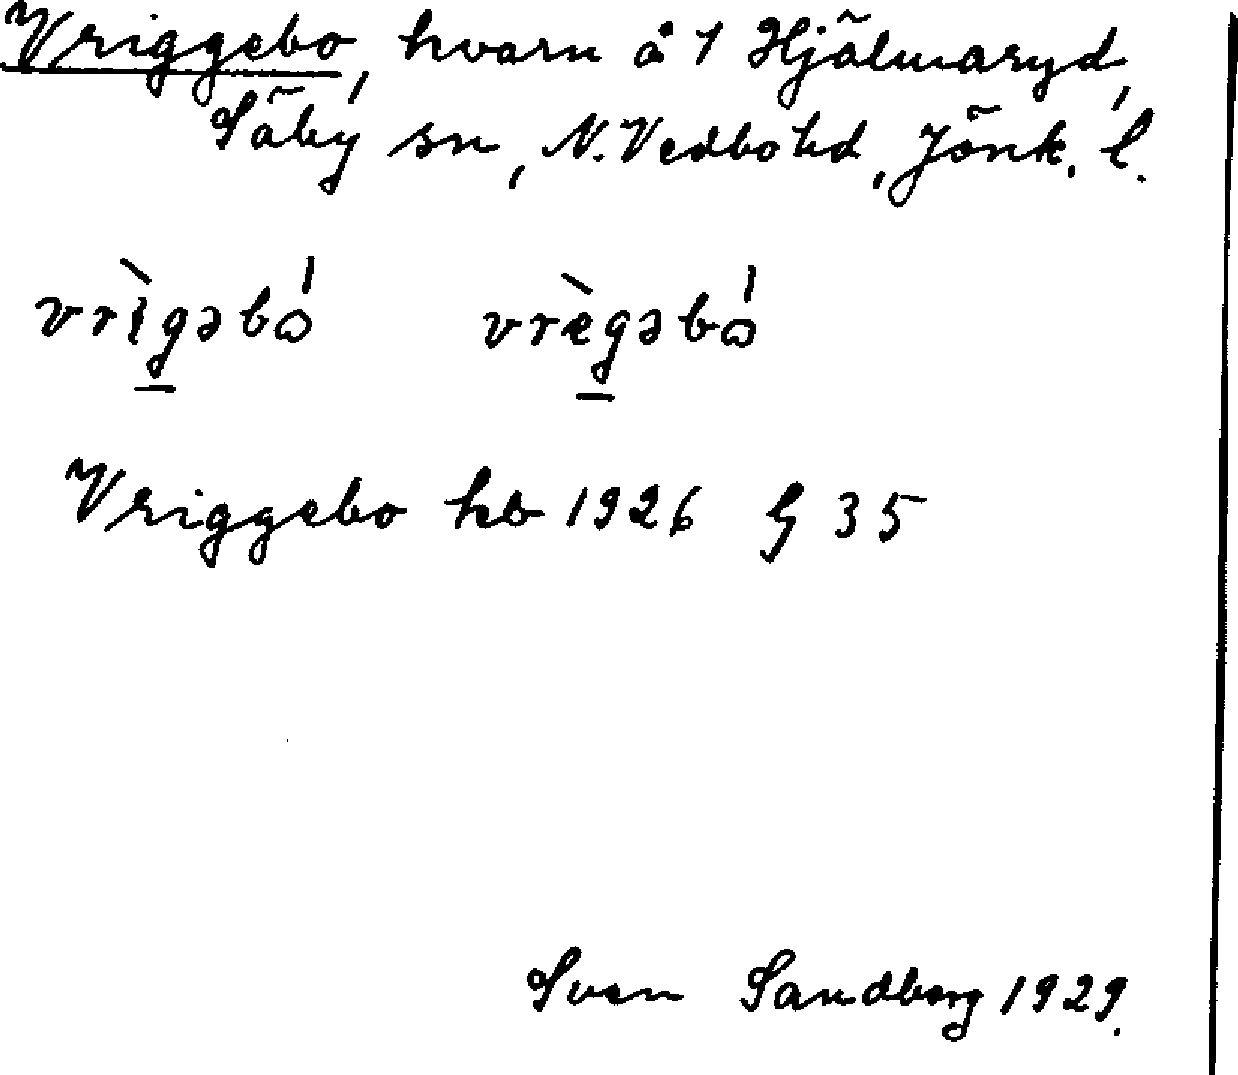 Vriggebo, kvarn å 1 Hjälmaryd,
Säby sn, N. Vedbo hd, Jönk. l.
vrìgəbó vrègəbó
Vriggebo kb 1926 § 35
Sven Sandberg 1929.